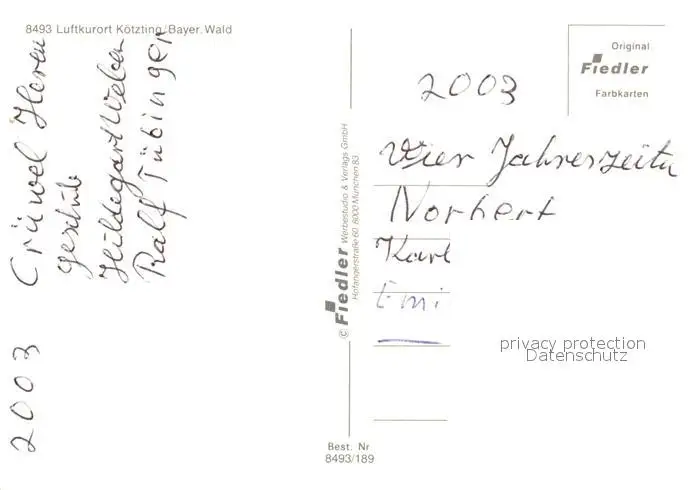 8493 Luftkurort Kötzting/Bayer. Wald
2003 Crüwel
geschule
Hildegart Weber
Ralf Tübinger
© Fiedler Werbestudio & Verlags GmbH
Hofangerstraße 60 8000 München 83
Best. Nr
8493/189
Original
Fiedler
Farbkarten
2003
Vier Jahreszeitn
Norbert
Karl
Emi
privacy protection
Datenschutz